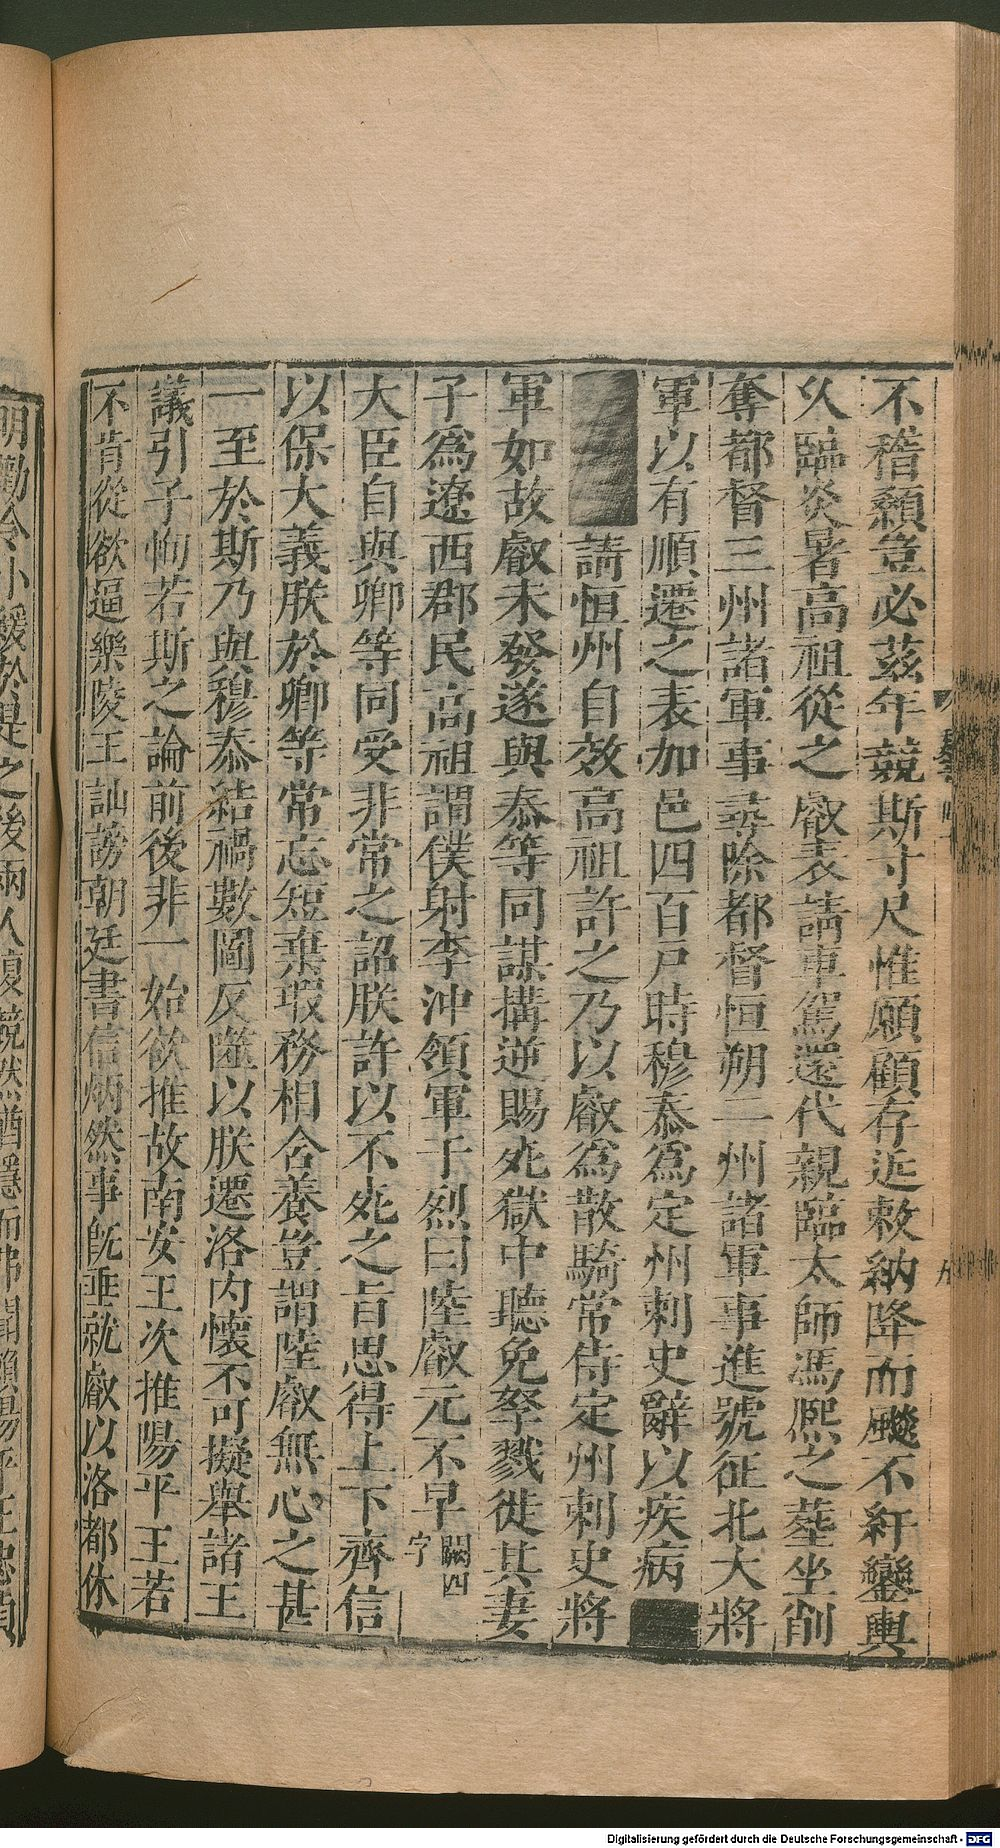 不稽顙豈必茲年競斯寸尺惟願顧存近敕納降而颺不紆鑾輿
久臨炎暑高祖從之叡表請車駕還代親臨太師馮熙之葬坐削
奪都督三州諸軍事尋除都督恒朔二州諸軍事進號征北大將
軍以有順遷之表加邑四百戶時穆泰為定州刺史辭以疾病
請恒州自效高祖許之乃以叡為散騎常侍定州刺史將
軍如故叡未發遂與泰等同謀搆逆賜死獄中聽免孥戮徙其妻
子為遼西郡民高祖謂僕射李沖領軍于烈曰陸叡元丕早闕四字
大臣自與卿等同受非常之詔朕許以不死之旨思得上下齊信
以保大義朕於卿等常忘短棄瑕務相含養豈謂陸叡無心之甚
一至於斯乃與穆泰結禍數圖反噬以朕遷洛內懷不可擬舉諸王
議引子恂若斯之論前後非一始欲推故南安王次推陽平王若
不肯從欲逼樂陵王訕謗朝廷書信炳然事既垂就叡以洛都休
明勸令小緩於是之後兩人復競然猶隱而弗聞賴陽平王忠貞
Digitalisierung gefördert durch die Deutsche Forschungsgemeinschaft - DFG